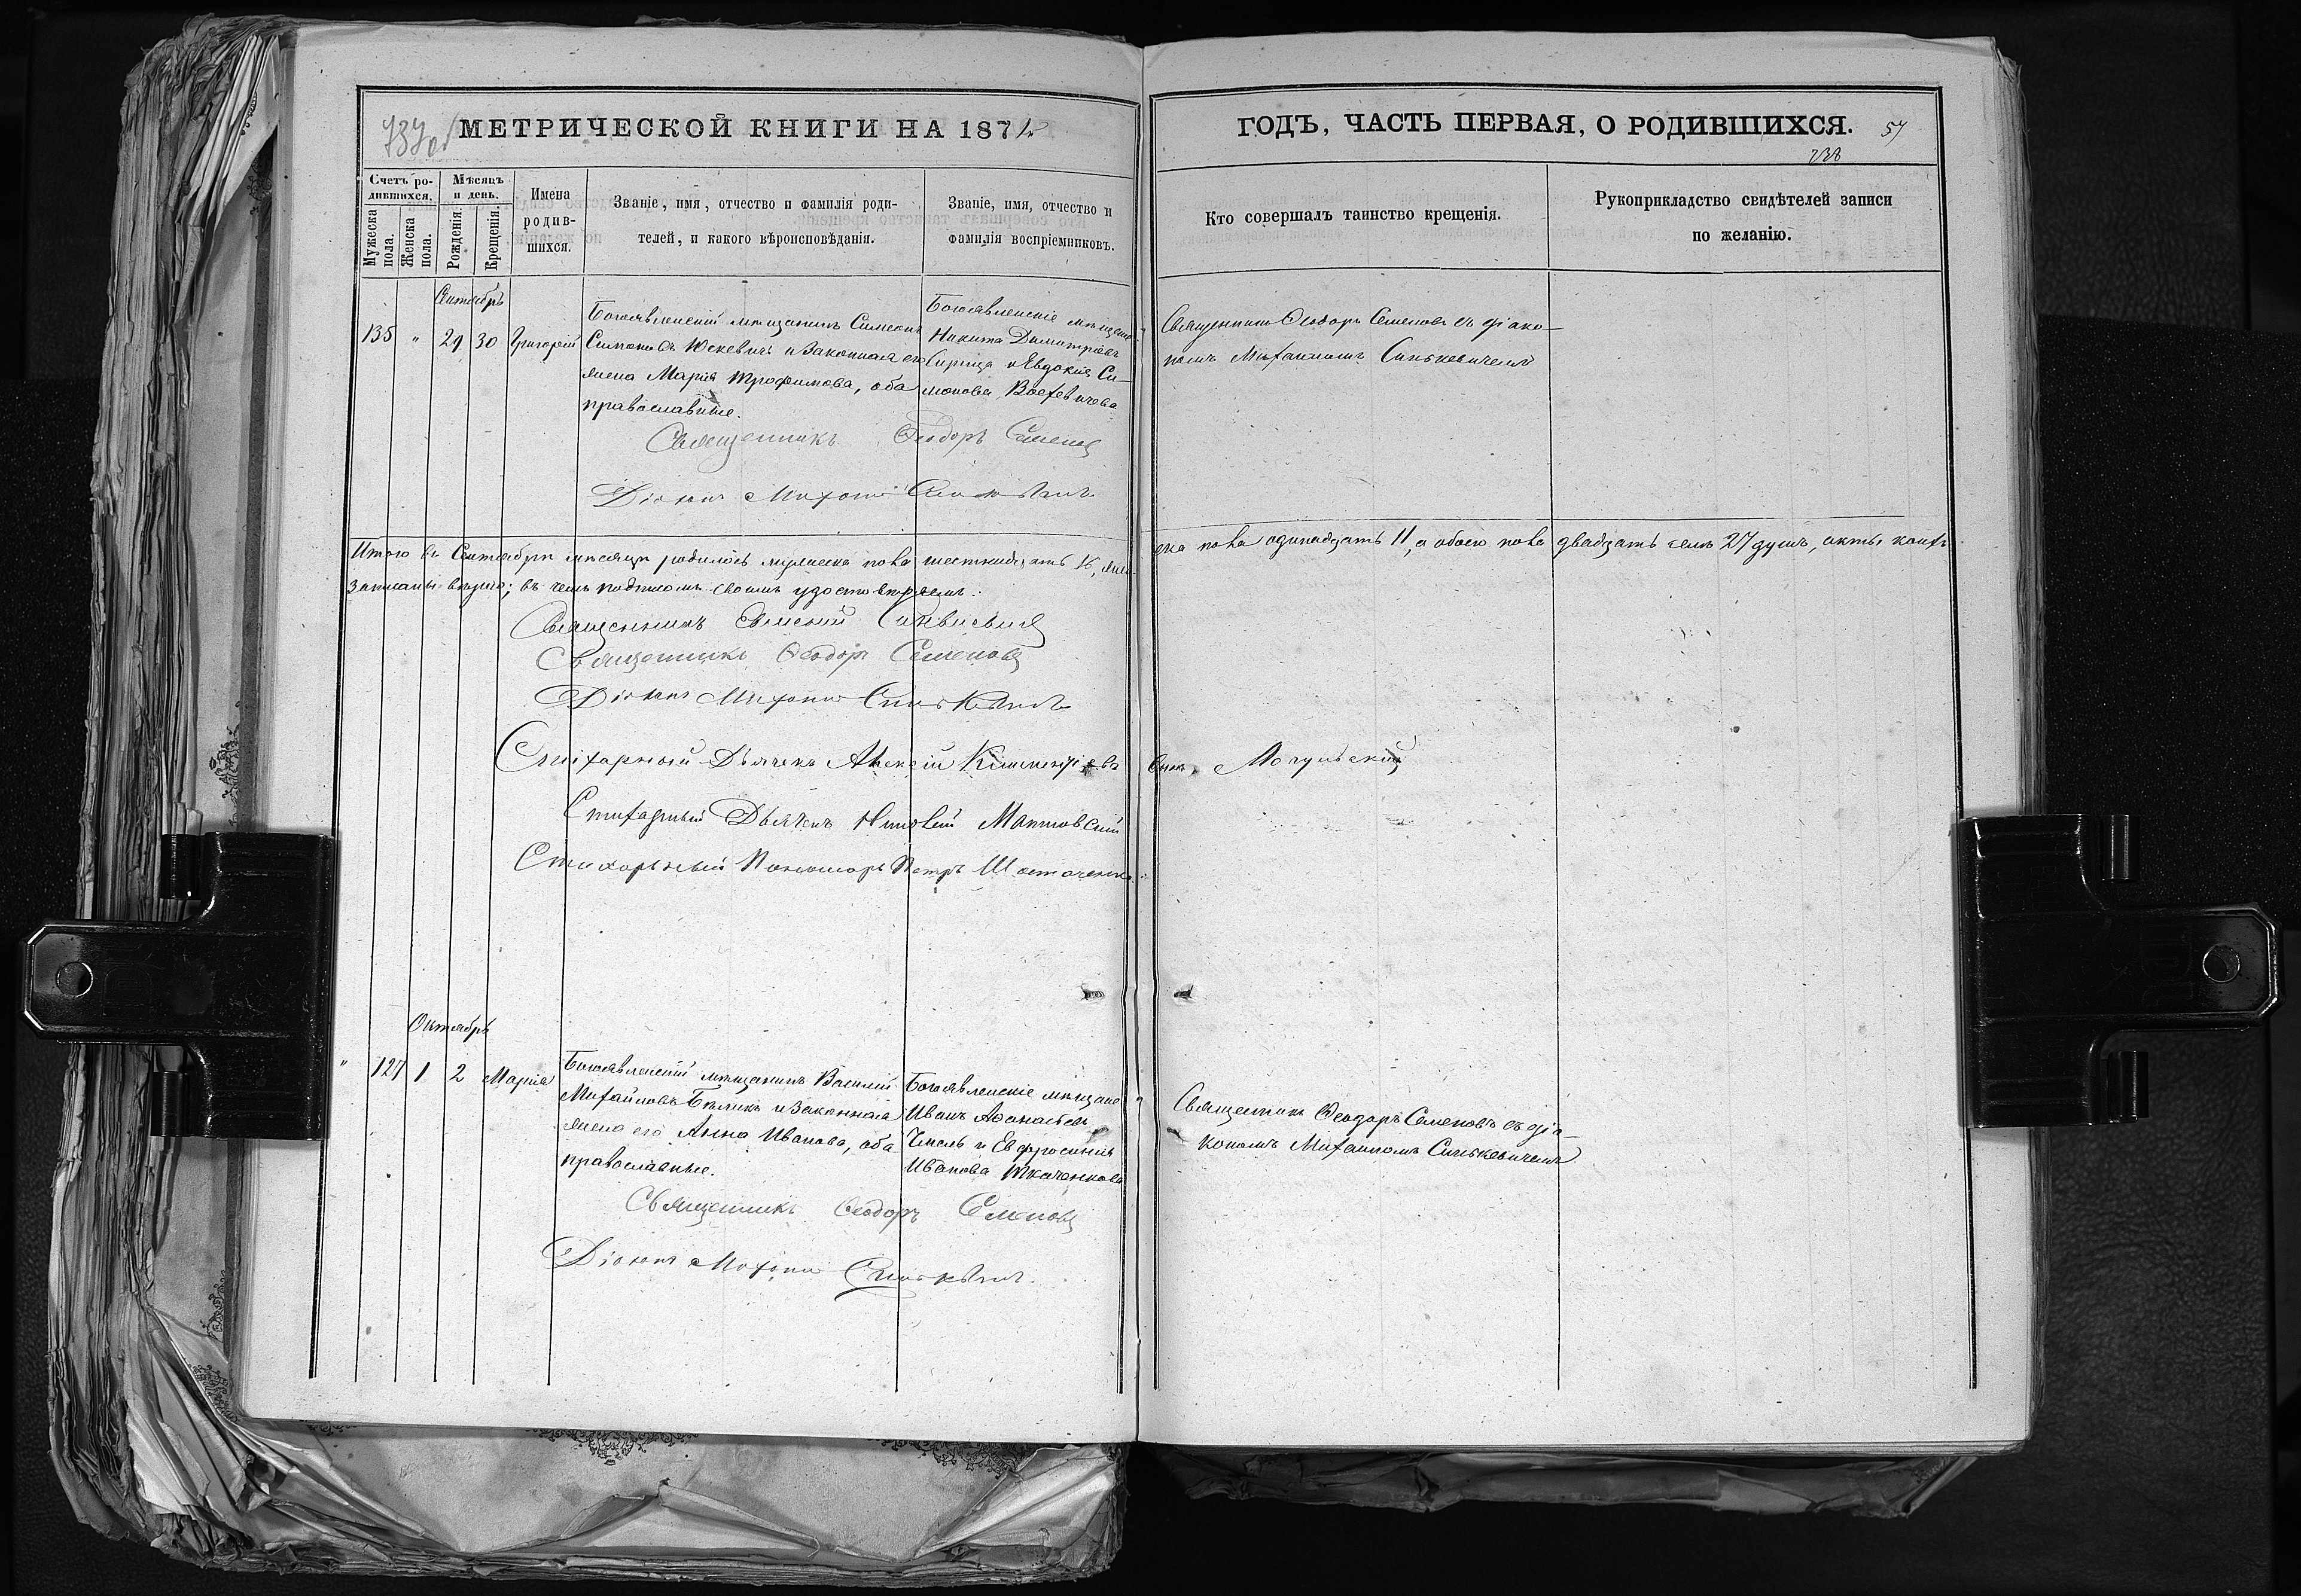 МЕТРИЧЕСКОЙ КНИГИ НА 187
ГОДЪ, ЧАСТЬ ПЕРВАЯ, О РОДИВШИХСЯ.
57
238
Счетъ ро-
дившихся.
Мужеска
пола.
Женска
пола.
Мѣсяцъ
и день.
Рожденія.
Крещенія.
Имена
родив-
шихся.
Званіе, имя, отчество и фамилія роди-
телей, и какого вѣроисповѣданія.
Званіе, имя, отчество и
фамилія воспріемниковъ.
Кто совершалъ таинство крещенія.
Рукоприкладство свидѣтелей записи
по желанію.
Сентябрь
135 " 29 30 Григорій
Богоявленскій мѣщанинъ Симеонъ
Симоновъ Юскевичъ и законная его
жена Марія Трофимова, оба
православные.
Богоявленскіе мѣщане
Никита Димитріевъ
и Евдокія Си-
монова
Священникъ Ѳеодоръ Семеновъ съ діако-
номъ Михаиломъ Синькевичемъ
Священникъ Ѳеодоръ Семеновъ
Діаконъ Михаилъ Синькевичъ
Итого въ Сентябрѣ мѣсяцѣ родилось мужеска пола шестнадцать 16, жен-
ска пола одинадцать 11, а обоего пола двадцать семь 27 душъ, акты коихъ
записаны вѣрно; въ чемъ подписомъ своимъ удостовѣряемъ:
Священникъ Евменій Синькевичъ
Священникъ Ѳеодоръ Семеновъ
Діаконъ Михаилъ Синькевичъ
Стихарный Дьячекъ Алексій Климентіевъ
сынъ Могульскій
Стихарный Дьячекъ
Стихарный Пономарь Петръ Шостаченко
Октябрь
" 127 1 2 Марія
Богоявленскій мѣщанинъ Василій
Михайловъ Бѣликъ и законная
жена его Анна Иванова, оба
православные.
Богоявленскіе мѣщане
Иванъ Аѳанасьевъ
Чмель и Евфросинія
Иванова Ткаченкова
Священникъ Ѳеодоръ Семеновъ съ діа-
кономъ Михаиломъ Синькевичемъ
Священникъ Ѳеодоръ Семеновъ
Діаконъ Михаилъ Синькевичъ